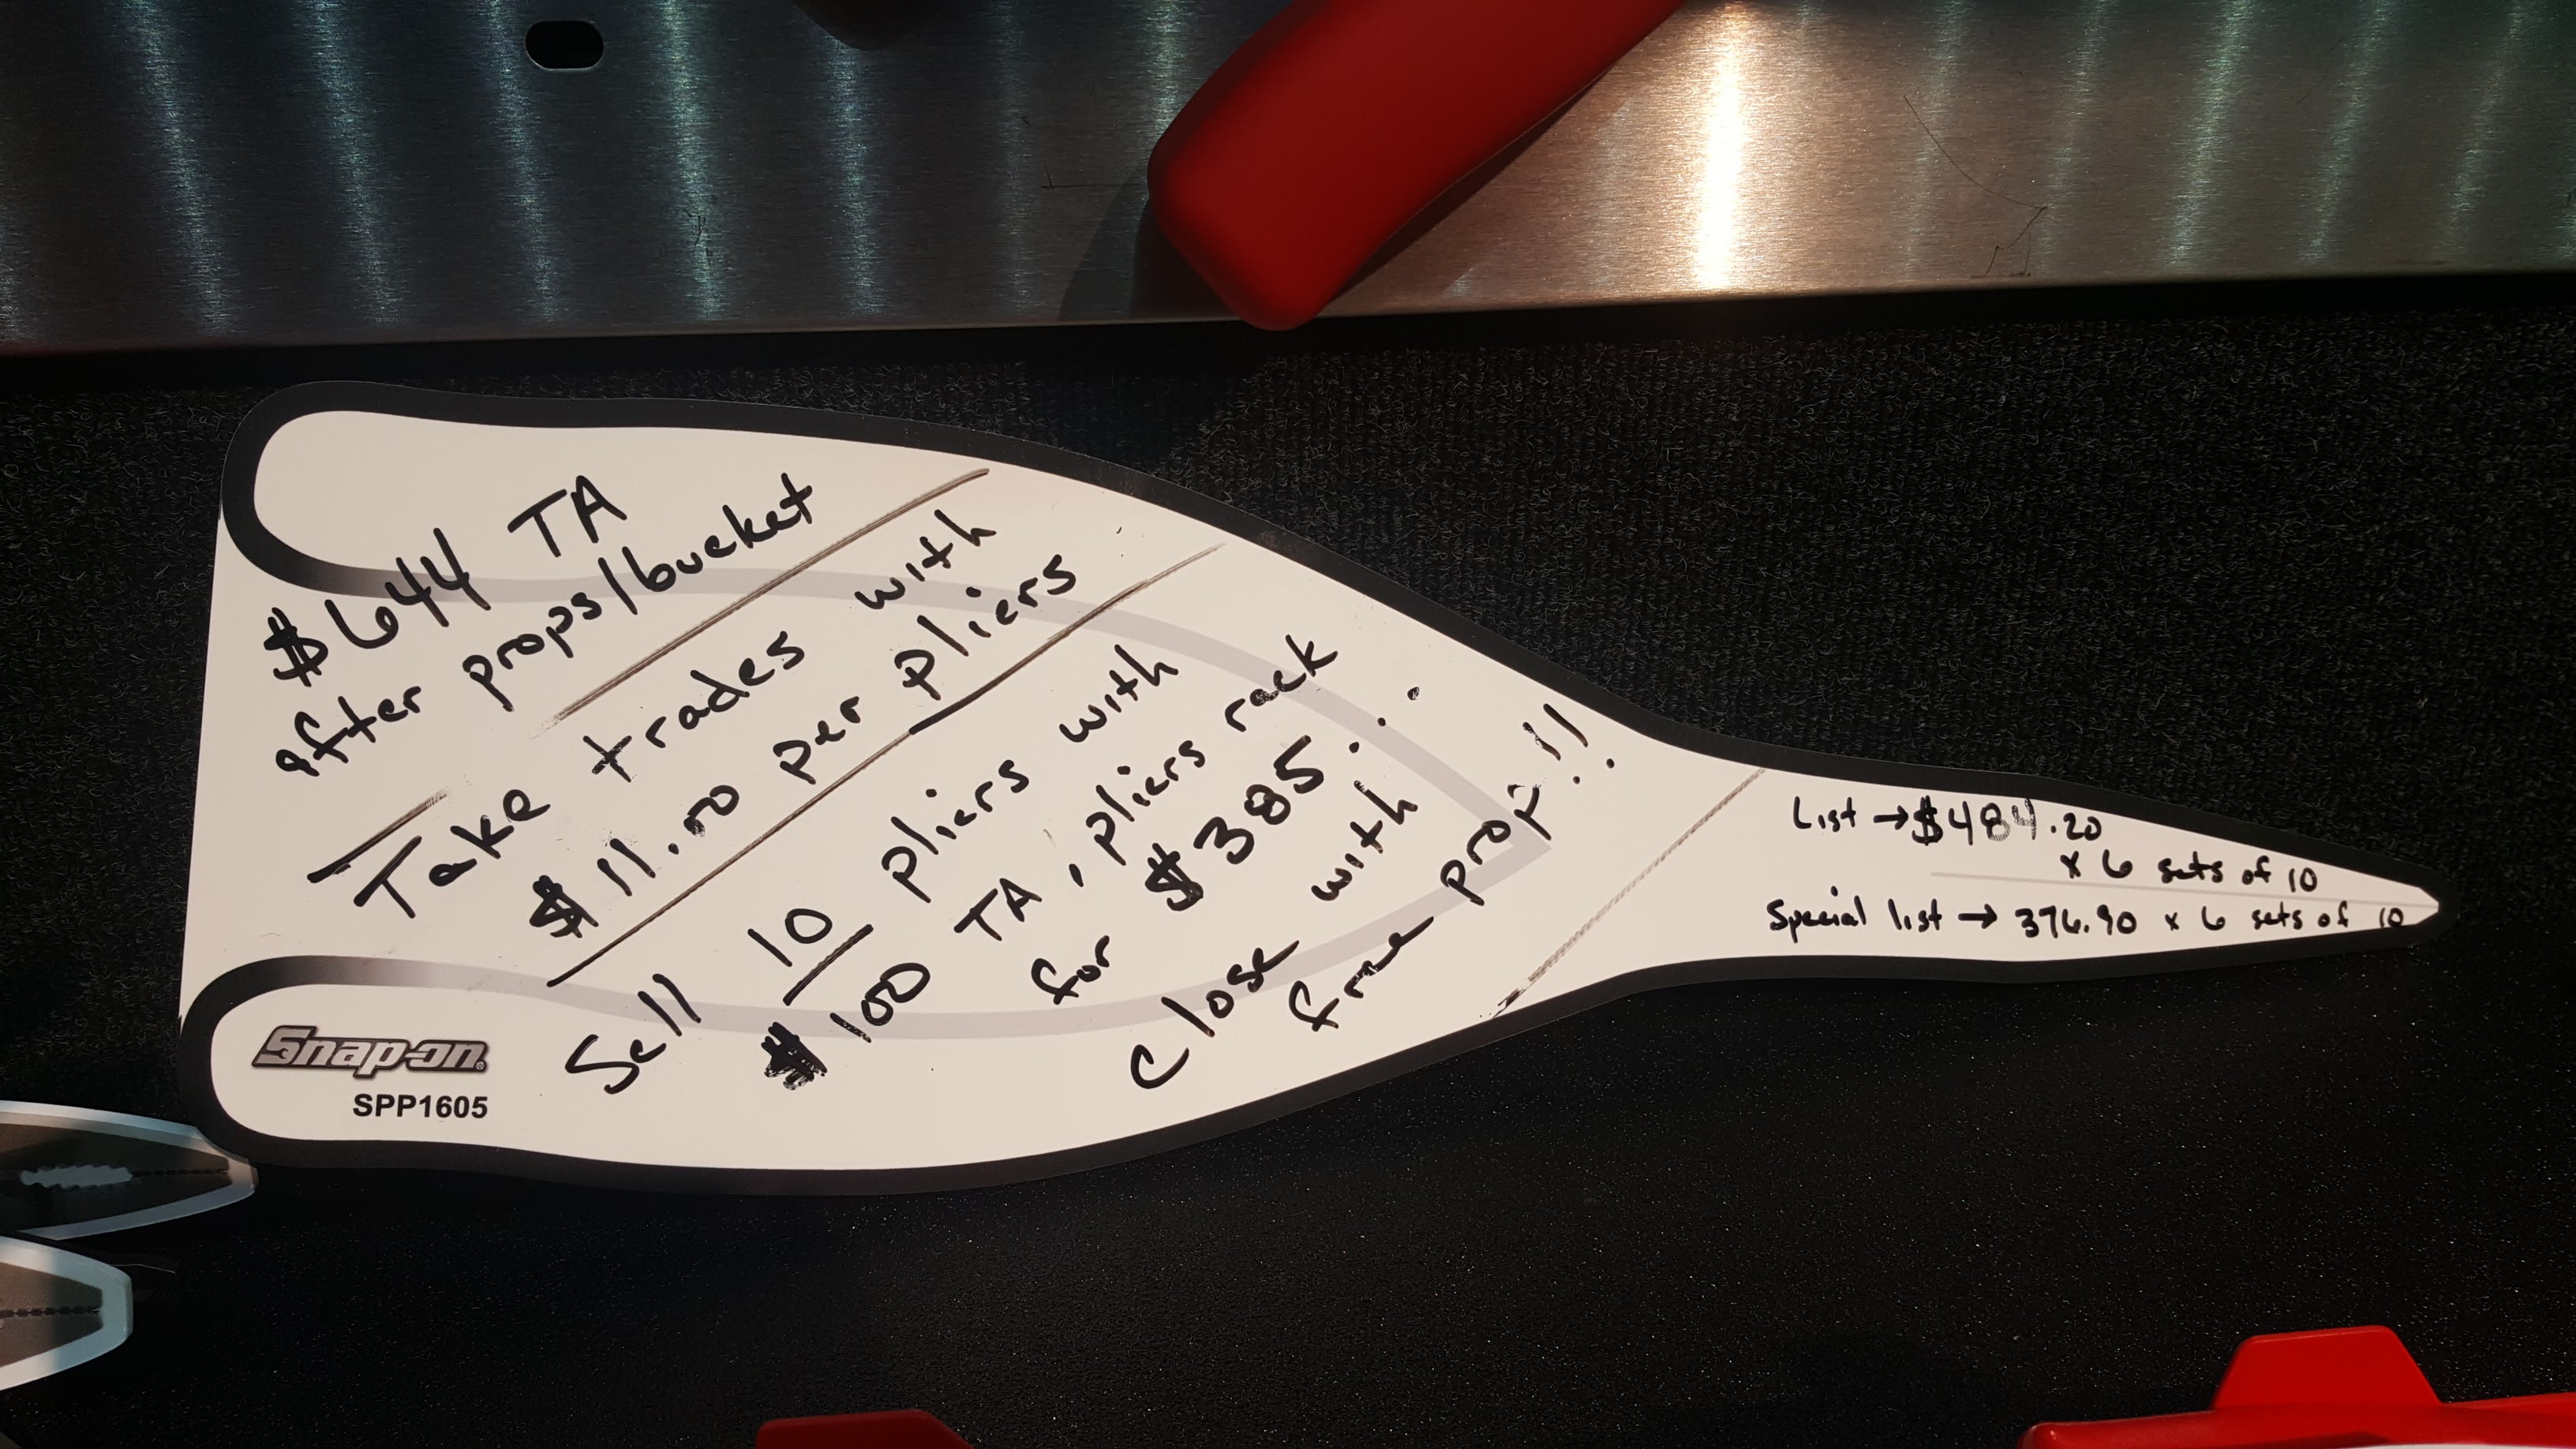 $644 TA
after props/bucket
Take trades with
$11.50 per pliers
Sell 10 pliers with
$100 TA, pliers rack
for $385...
Close with
free prop!!
List →$484.20
x 6 sets of 10
Special list → 376.90 x 6 sets of 10
Snap-on
SPP1605